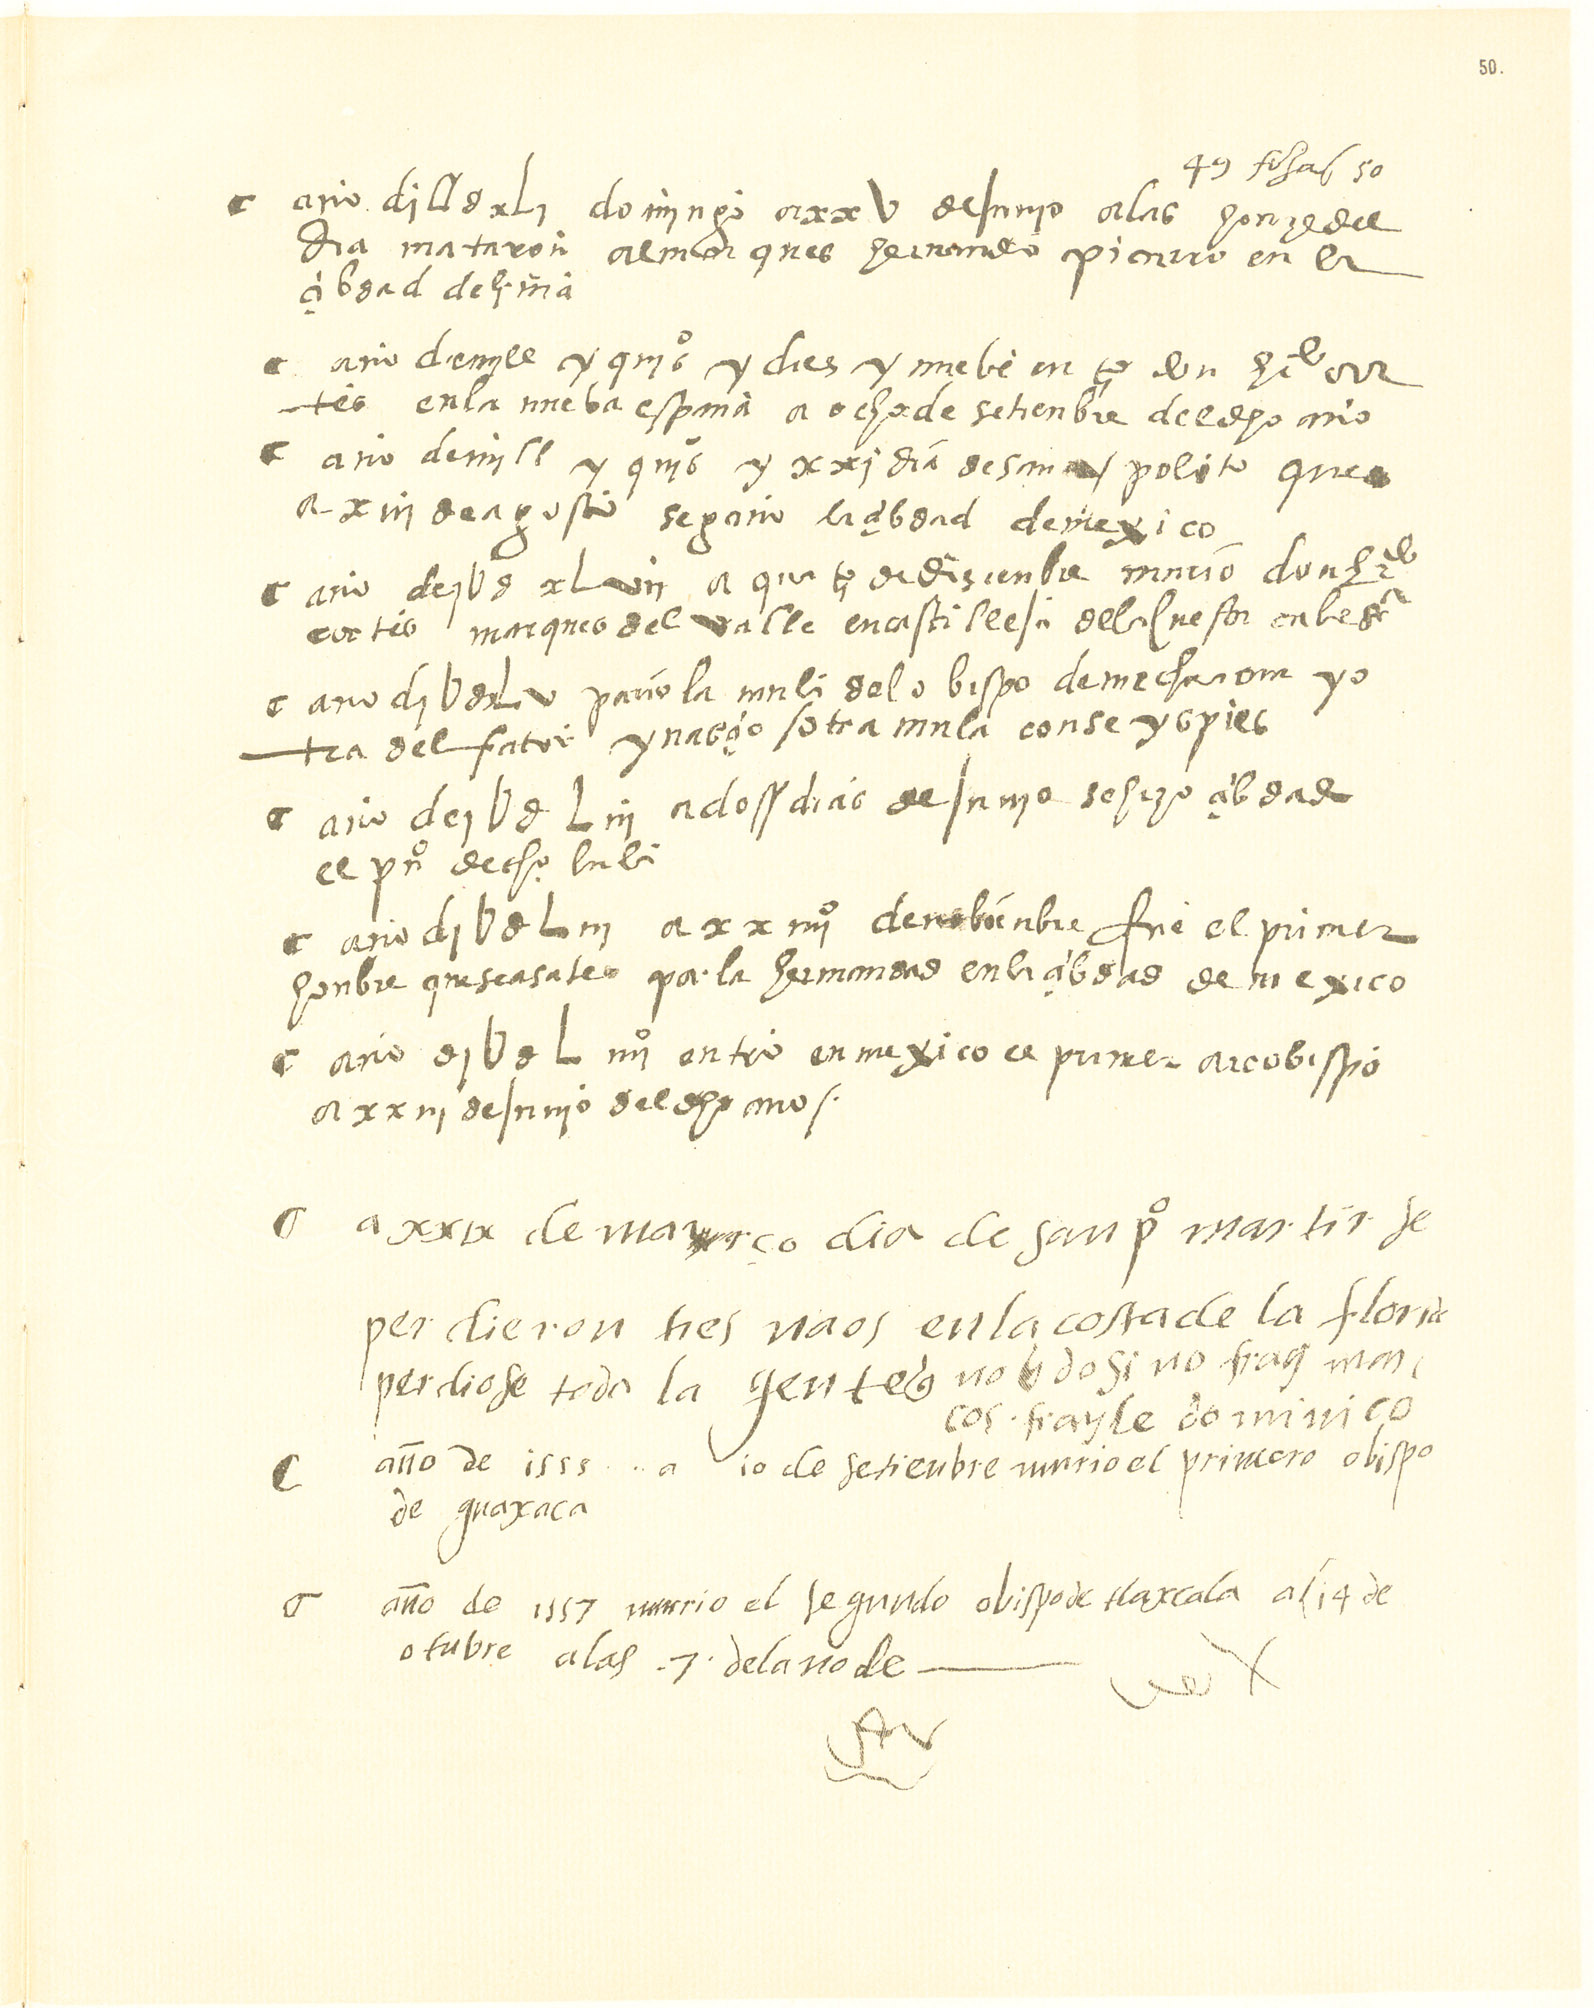 50.
49 fojas 50
año d jUd xLi domingo a xxv de junio a las honze del
dia mataron al marques hernando piçarro en la
çibdad de lima
año de mill y quis y dies y nuebe entro don hrdo cor
tes en la nueba españa a ocho de setienbre del dho año
año de mill y quis y xxj dia de san ypolito que es
a xiij de agosto se gano la çibdad de mexico
año de jUd xLvii a quatro de dizienbre murio don hrdo
cortes marques del valle en castilleja de la cuesta
año d jUd Lv pario la mula del obispo de mechuacan y o
tra del fator y nasçio otra mula con seys pies
año de jUd Liij a doss dias de junio se hizo çibdad
el po de cholula
año d jUd Liij a xx iiijo de nobienbre fue el primer
honbre que se asateo por la hermandad en la çibdad de mexico
año d jUd L iiijo entro en mexico el primer arcobispo
a xxiij de junio del dho año
a xxix de março dia de san po martir se
perdieron tres naos en la costa de la florida
perdiose toda la gente q no qdo si no fray mar
cos frayle dominico
año de 1555 a 10 de setienbre murio el primero obispo
de guaxaca
año de 1557 murio el segundo obispo de tlaxcala a 14 de
otubre a las .7. de la noche